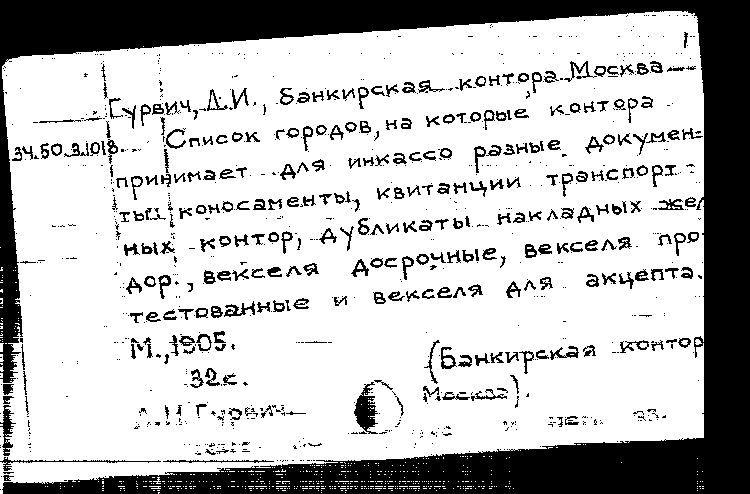 Гурвич, Л.И., банкирская контора Москва
34.50.3.1018. Список городов, на которые контора
принимает для инкассо разные докумен=
ты: коносаменты, квитанции транспорт=
ных контор, дубликаты накладных жел
дор., векселя досрочные, векселя про
тестованные и векселя для акцепта.
М., 1905.
32с.
(Банкирская контор
Москва).
Л.И Гурвич